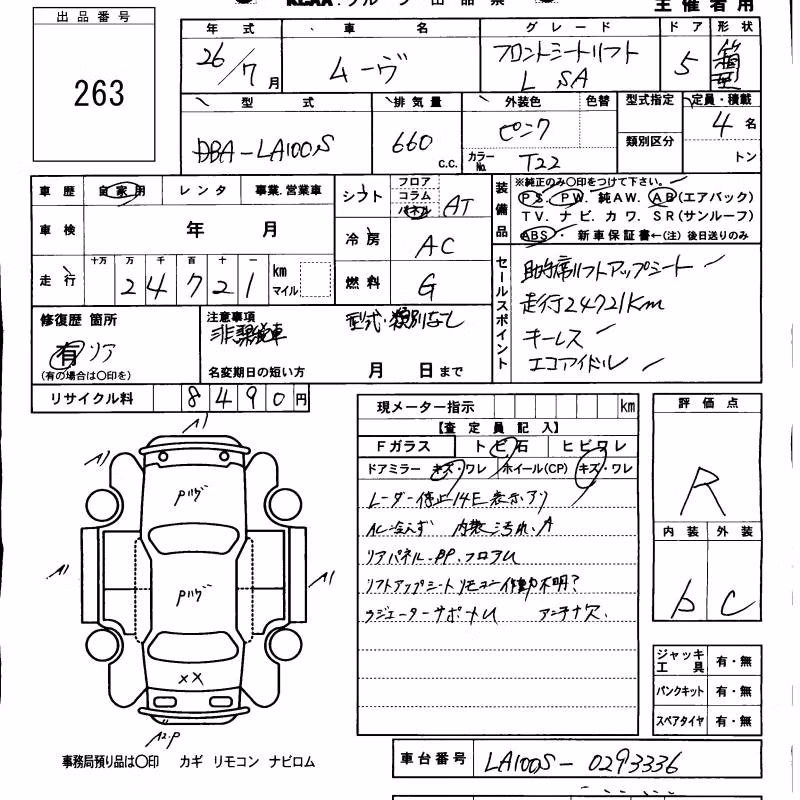 出品番号
263
主催者用
年式 車名 グレード ドア 形状
26/7月 ムーヴ フロントシートリフト L SA 5 箱型
型式 排気量 外装色 色替 型式指定 定員・積載
DBA-LA100S 660 c.c. ピンク 4名
カラーNo. T22 類別区分 トン
車歴 自家用 レンタ 事業.営業車
車検 年 月
走行 十万 万 千 百 十 一
2 4 7 2 1 km マイル
シフト フロア コラム パネル AT
冷房 AC
燃料 G
装備品
※純正のみ〇印をつけて下さい。
PS. PW. 純AW. AB(エアバック)
TV. ナビ. カワ. SR(サンルーフ)
ABS・新車保証書←(注)後日送りのみ
セールスポイント
助手席リフトアップシート
走行24721km
キーレス
エコアイドル
修復歴 箇所
有 リア
(有の場合は〇印を)
注意事項
非課税車 型式・類別なし
名変期日の短い方 月 日まで
リサイクル料 8490円
現メーター指示 km
【査定員記入】
Fガラス トビ石 ヒビワレ
ドアミラー キズ・ワレ ホイール(CP) キズ・ワレ
レーダー停止14E表示アリ
AC冷えず 内装汚れ.A
リアパネル.PP.フロアM
リフトアップシートリモコン作動不明?
ラジエーターサポートM アンテナ欠.
評価点
R
内装 外装
b C
ジャッキ工具 有・無
パンクキット 有・無
スペアタイヤ 有・無
A1)
A1)
A1)
A1)
Pハゲ
Pハゲ
XX
A2.P
事務局預り品は〇印 カギ リモコン ナビロム
車台番号 LA100S-0293336